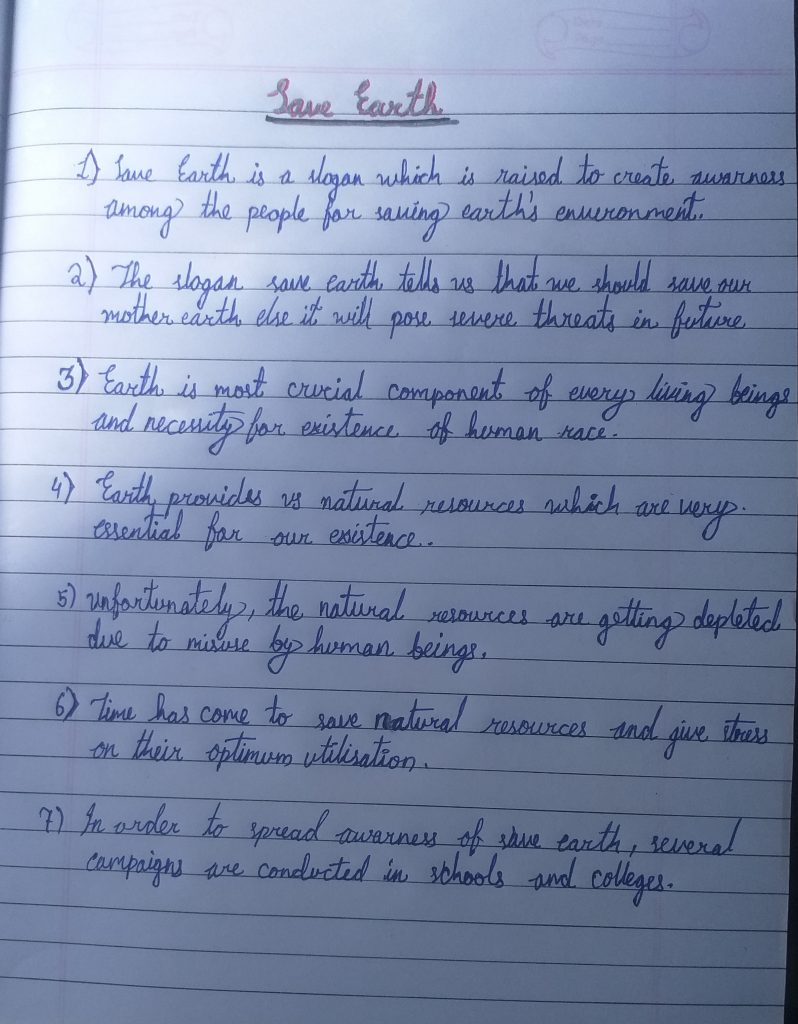 Save Earth
1) Save Earth is a slogan which is raised to create awarness
among the people for saving earth's enveronment.
2) The slogan save earth tells us that we should save our
mother earth else it will pose severe threats in future
3) Earth is most crucial component of every living beings
and necessity for existence of human race.
4) Earth provides us natural resources which are very.
essential for our existence.
5) unfortunately, the natural resources are getting depleted
due to misuse by human beings.
6) Time has come to save natural resources and give stress
on their optimum utilisation.
7) In order to spread awarness of save earth, several
campaigns are conducted in schools and colleges.